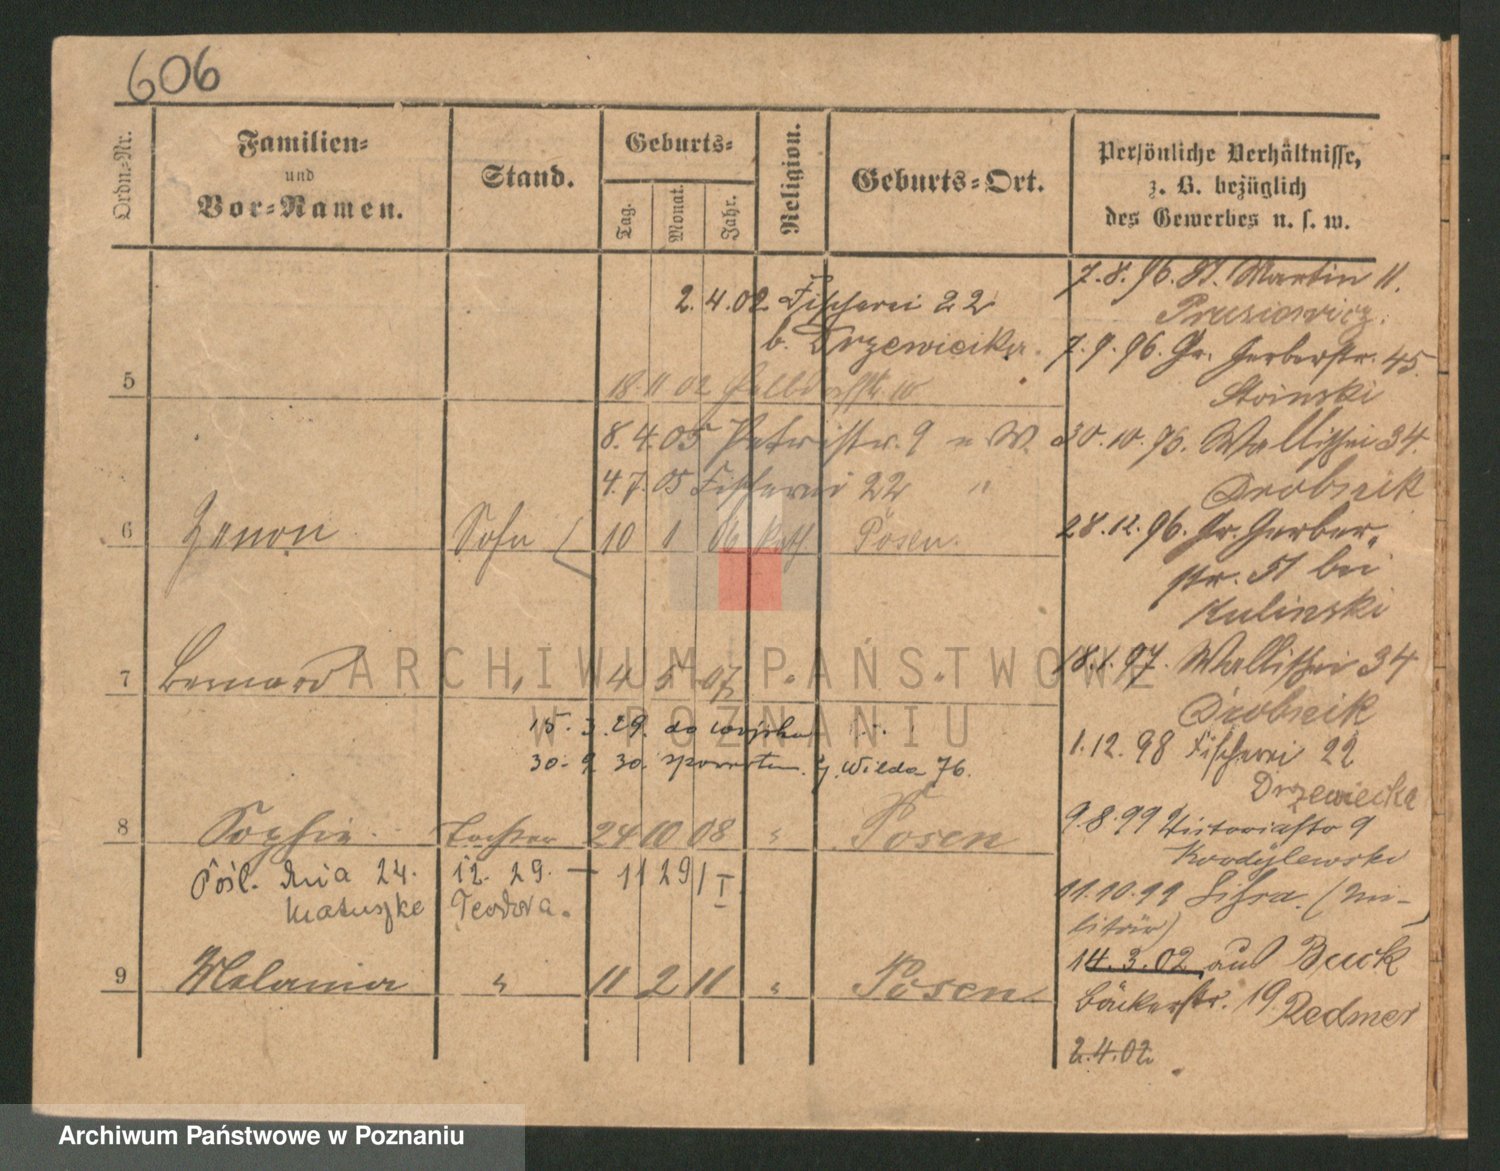 606
Ordn.-Nr.
Familien-
und
Vor-Namen.
Stand.
Geburts-
Tag.
Monat.
Jahr.
Religion.
Geburts-Ort.
Persönliche Verhältnisse,
z. B. bezüglich
des Gewerbes u. s. w.
2.4.02 Fischerei 22
b. Drzewiecka.
5 18 11 02 10
8.4.05 Petristr. 9 W.
4.7.05 Fischerei 22 "
6 Zenon Sohn 10 1 06 kath Posen.
7 Bernard " 4 5 07 " "
15. 3. 29. do wojska
30. 9. 30. z Wilda 76.
8 Sophie Tochter 24 10 08 " Posen
Pośl. dnia 24. 12. 29. – 11 29/I.
Matuszke Teodora.
9 Melania " 11 2 11 " Posen
7.8.96. St. Martin 11.
Prusiewicz.
7.9.96. Gr. Gerberstr. 45
Stoinski
30.10.96. Wallischei 34.
Drobnik
28.12.96. Gr. Gerber-
str. 51 bei
Kulinski
18.1.97. Wallischei 34
Drobnik
1.12.98 Fischerei 22
Drzewiecka
9.8.99 9
11.10.99 Lissa. (Mi-
litär)
14.3.02 aus Buck
Bäckerstr. 19. Redmer
2.4.02.
ARCHIWUM PAŃSTWOWE
W POZNANIU
Archiwum Państwowe w Poznaniu